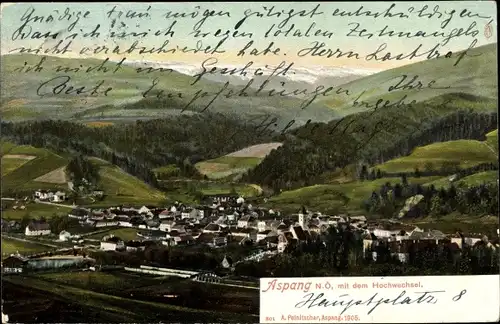 Gnädige Frau mögen gütigst entschuldigen
dass ich mich wegen totalen Zeitmangels
nicht verabschiedet habe. Herrn Lastbach
ich mich in Gesellschaft
Beste Empfehlungen Ihre
Aspang N.Ö. mit dem Hochwechsel.
Hauptplatz 8
A. Polnitscher, Aspang. 1905.